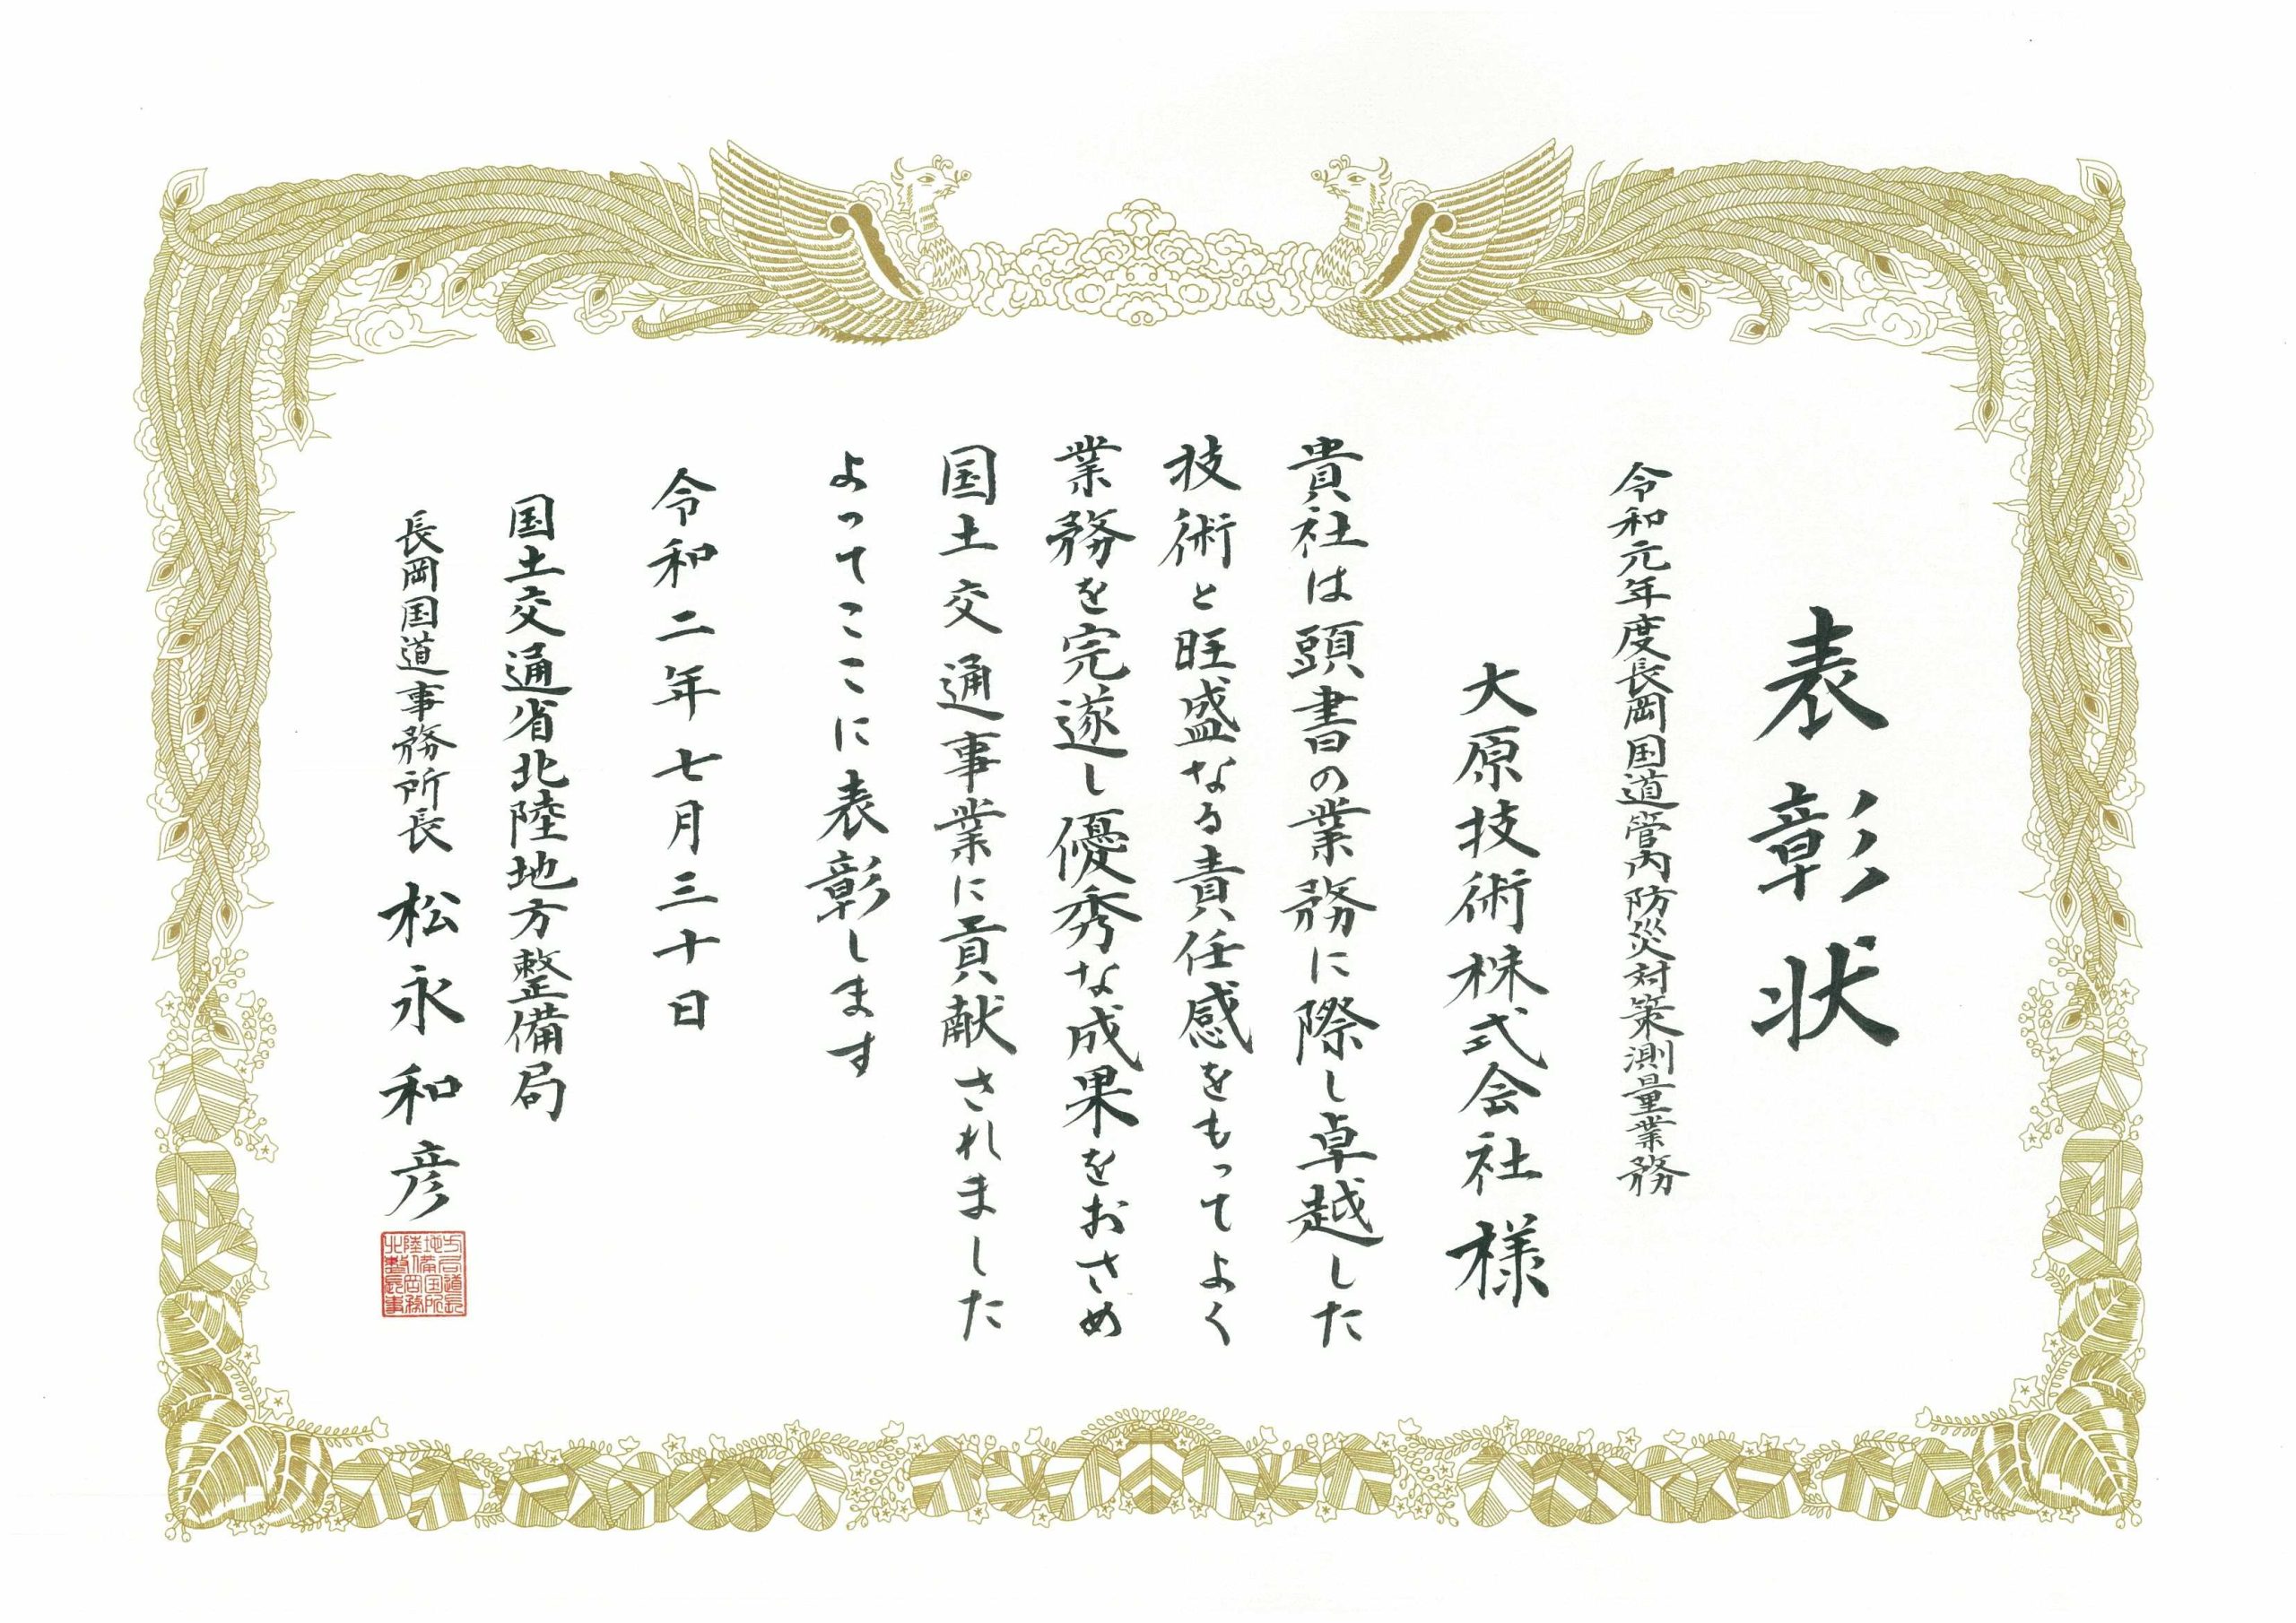 表彰状
令和元年度長岡国道管内防災対策測量業務
大原技術株式会社様
貴社は頭書の業務に際し卓越した
技術と旺盛なる責任感をもってよく
業務を完遂し優秀な成果をおさめ
国土交通事業に貢献されました
よってここに表彰します
令和二年七月三十日
国土交通省北陸地方整備局
長岡国道事務所長 松永和彦
北陸地方整備局長岡国道事務所長